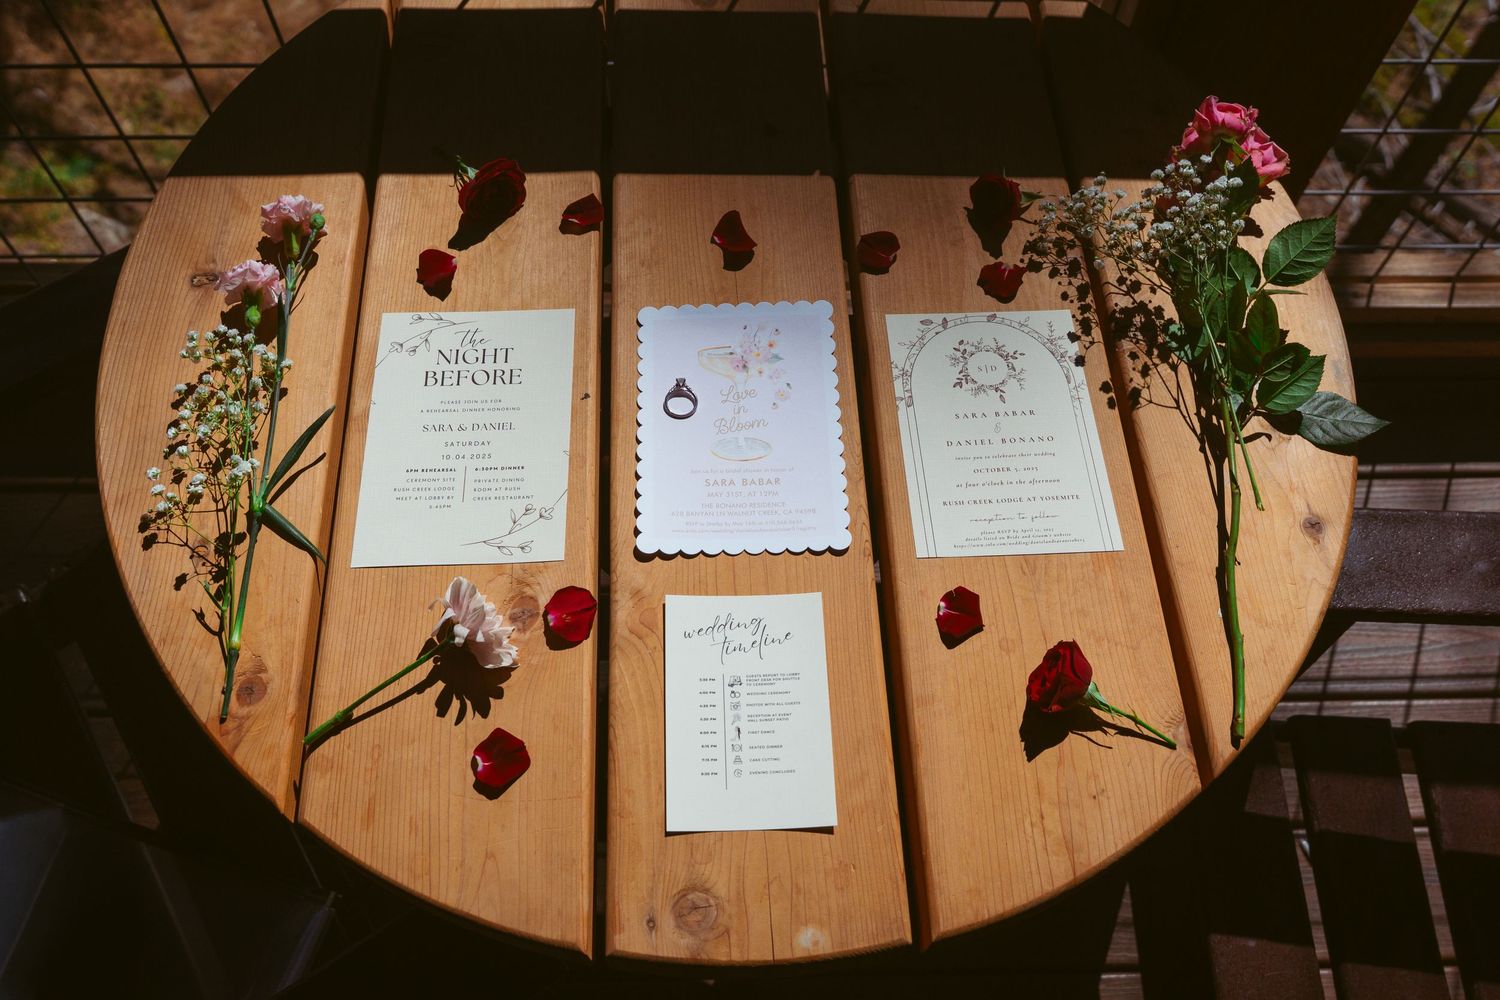 the
NIGHT
BEFORE
PLEASE JOIN US FOR
A REHEARSAL DINNER HONORING
SARA & DANIEL
SATURDAY
10.04.2025
6PM REHEARSAL
CEREMONY SITE
RUSH CREEK LODGE
MEET AT LOBBY BY
5:45PM
6:30PM DINNER
PRIVATE DINING
ROOM AT RUSH
CREEK RESTAURANT
Love
in
Bloom
Join us for a bridal shower in honor of
SARA BABAR
MAY 31ST, AT 12PM
THE BONANO RESIDENCE
628 BANYAN LN WALNUT CREEK, CA 94598
RSVP to Shelby by May 16th at
S|D
SARA BABAR
&
DANIEL BONANO
invite you to celebrate their wedding
OCTOBER 5, 2025
at four o'clock in the afternoon
RUSH CREEK LODGE AT YOSEMITE
reception to follow
please RSVP by April 12, 2025
details listed on Bride and Groom's website
wedding
timeline
3:30 PM GUESTS REPORT TO LOBBY
FRONT DESK FOR SHUTTLE
TO CEREMONY
4:00 PM WEDDING CEREMONY
4:30 PM PHOTOS WITH ALL GUESTS
5:30 PM RECEPTION AT EVENT
HALL SUNSET PATIO
6:00 PM FIRST DANCE
6:15 PM SEATED DINNER
7:15 PM CAKE CUTTING
9:30 PM EVENING CONCLUDES